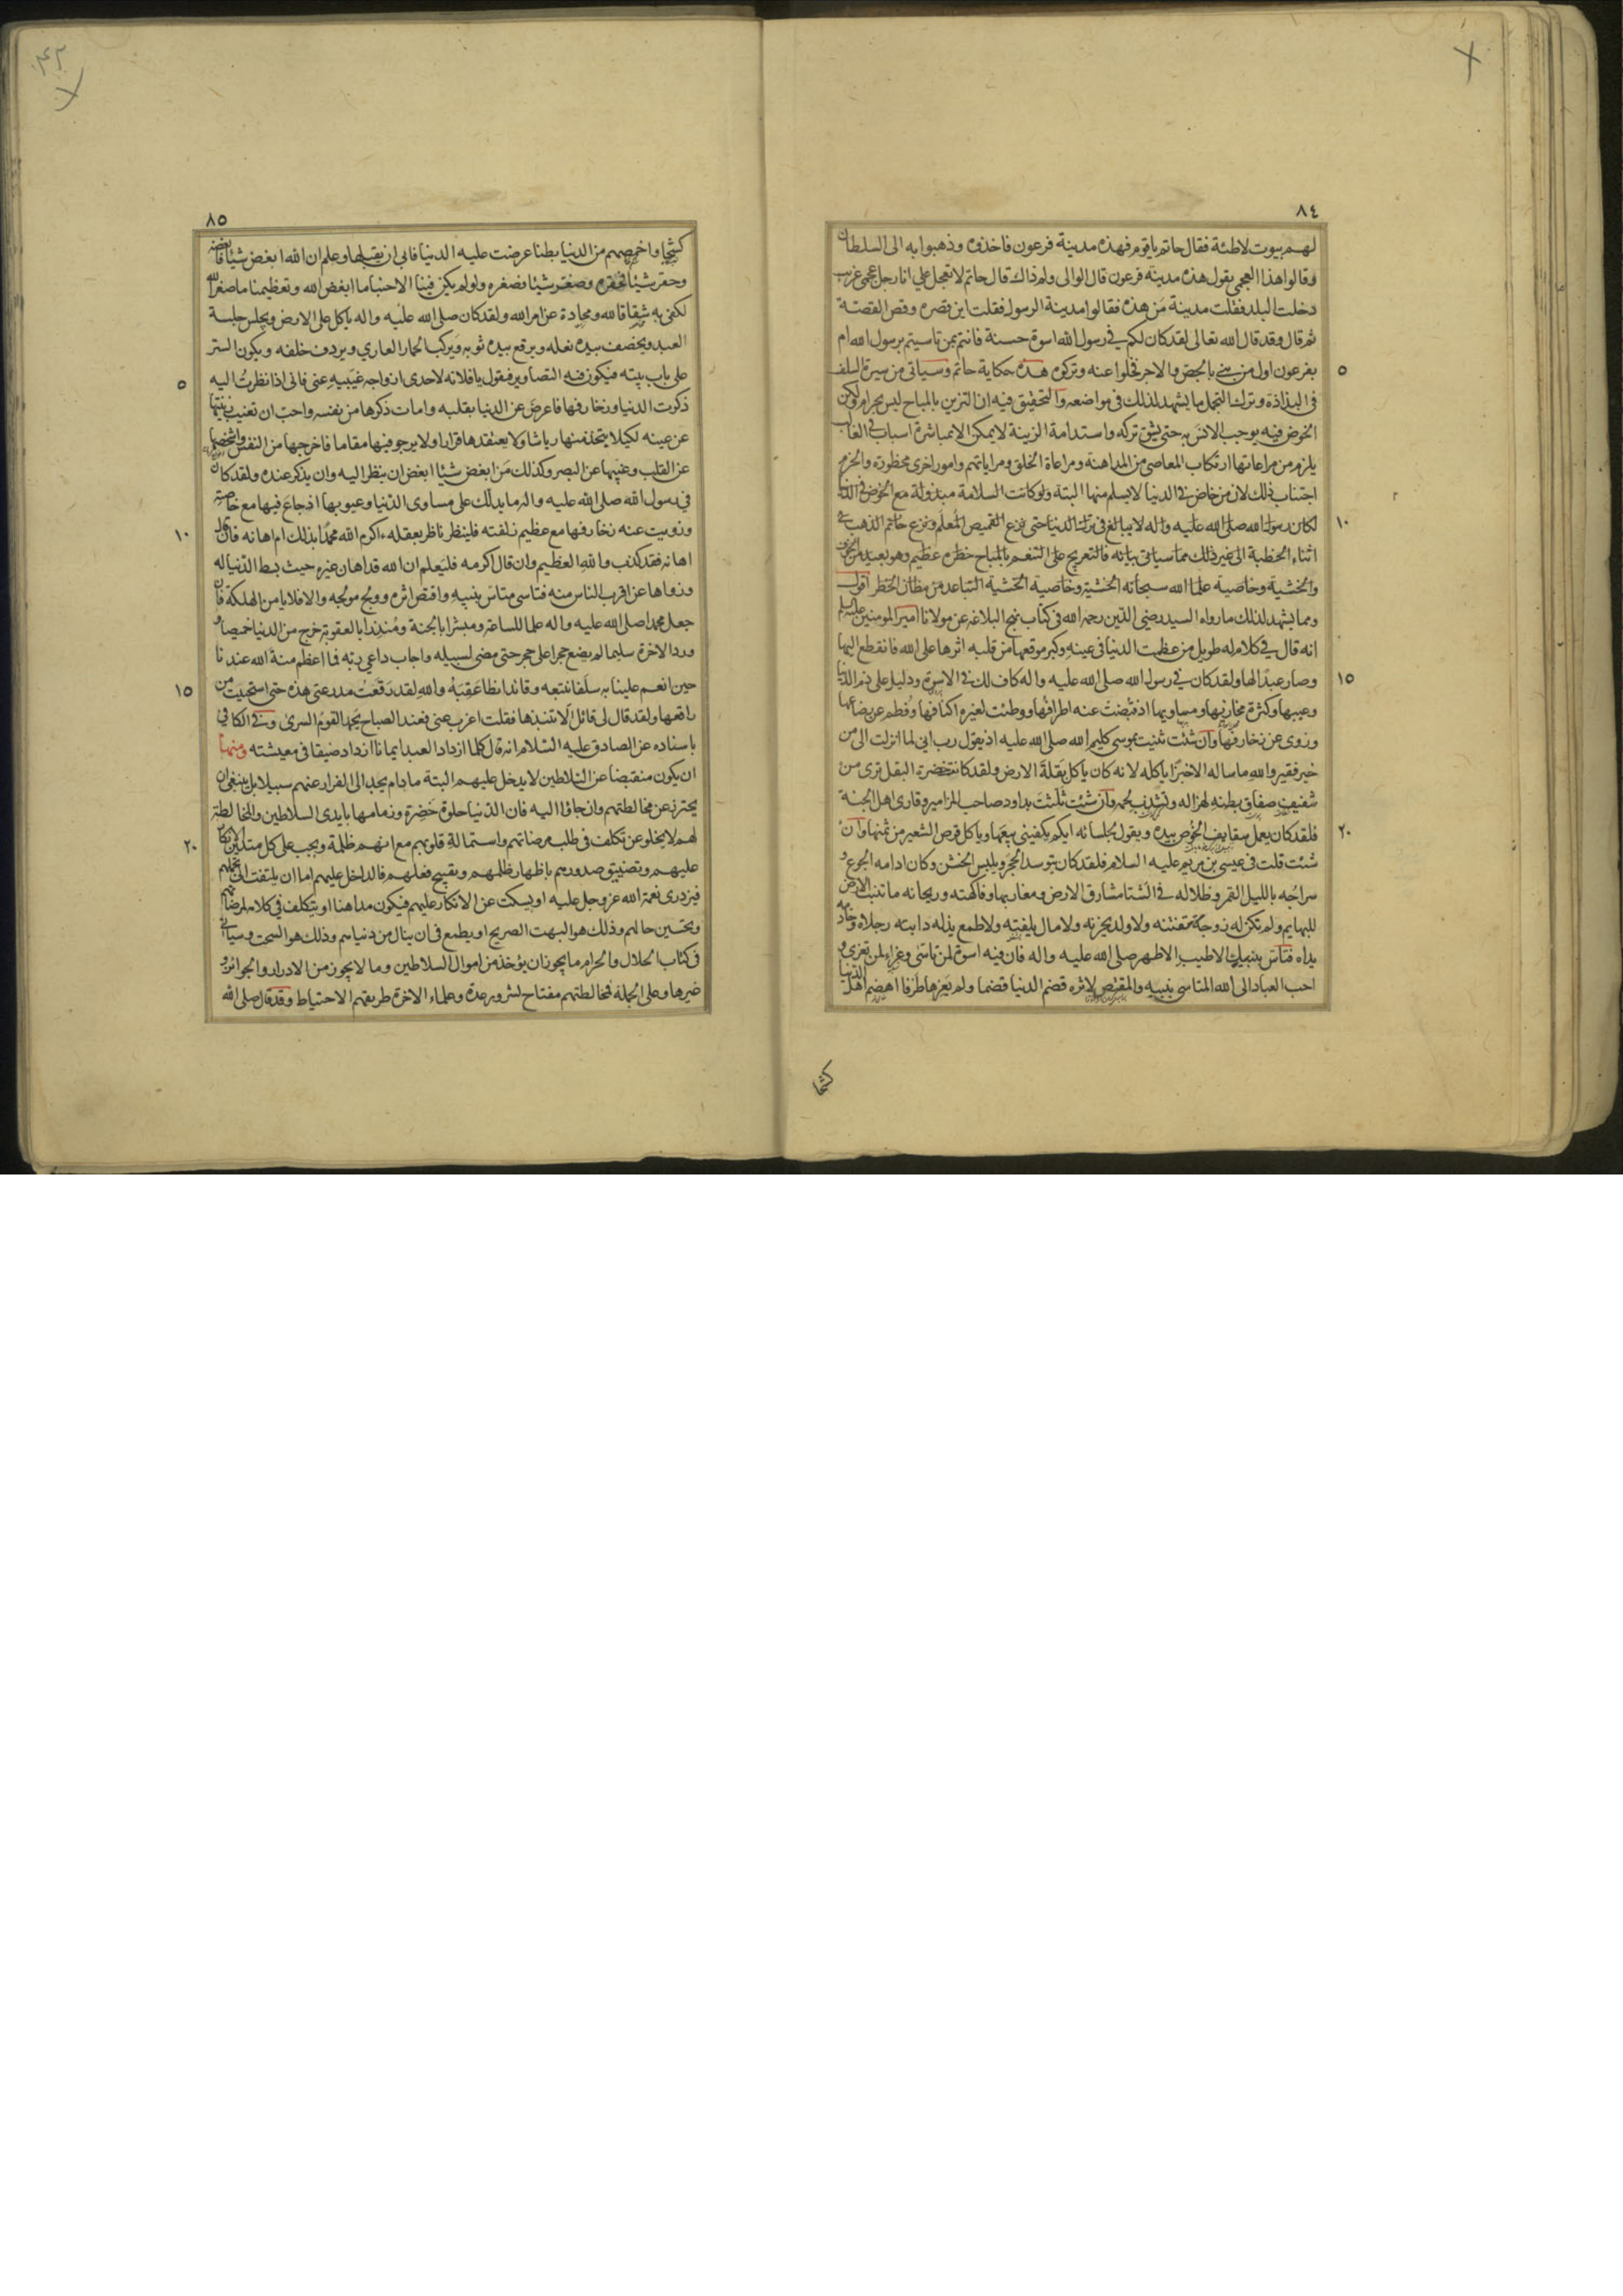 ٨٤
لهم بيوت لاطئة فقال حاتم يا قوم فهذه مدينة فرعون فاخذوه وذهبوا به الى السلطان
وقالوا هذا العجمي يقول هذه مدينة فرعون قال الوالى ولم ذاك قال حاتم لا تعجل علي انا رجل عجمى غريب
دخلت البلد فقلت مدينة من هذه فقالوا مدينة الرسول فقلت اين قصره وقص القصة
ثم قال وقد قال الله تعالى لقد كان لكم في رسول الله اسوة حسنة فانتم بمن تاسيتم برسول الله ام
٥
بفرعون اول من بنى بالجص والاجر فخلوا عنه وتركوه هذه حكاية حاتم وسياتى من سيرة السلف
فى البذاذة وترك التجمل ما يشهد لذلك فى مواضعه والتحقيق فيه ان التزين بالمباح ليس بحرام ولكن
الخوض فيه يوجب الانس به حتى يشق تركه واستدامة الزينة لا يمكن الا بمباشرة اسباب في الغالب
يلزم من مراعاتها ارتكاب المعاصى من المداهنة ومراعاة الخلق ومراياتهم وامور اخرى محظورة والحزم
اجتناب ذلك لان من خاض في الدنيا لا يسلم منها البتة ولو كانت السلامة مبذولة مع الخوض في الدنيا
١٠
لكان رسول الله صلى الله عليه واله لا يبالغ فى ترك الدنيا حتى نزع القميص المعلم ونزع خاتم الذهب في
اثناء الخطبة الى غير ذلك مما سياتى بيانه فالتعريج على التنعم بالمباح خطره عظيم وهو بعيد من الخوف
والخشية وخاصية علماء الله سبحانه الخشية وخاصية الخشية التباعد من مظان الخطر اقول
ومما يشهد لذلك ما رواه السيد رضي الدين رحمه الله فى كتاب نهج البلاغه عن مولانا امير المومنين عليه السلم
انه قال في كلام له طويل من عظمت الدنيا فى عينه وكبر موقعها من قلبه اثرها على الله فانقطع اليها
١٥
وصار عبدا لها ولقد كان في رسول الله صلى الله عليه واله كاف لك في الاسوة ودليل على ذم الدنيا
وعيبها وكثرة مخازيها ومساويها اذ قبضت عنه اطرافها ووطئت لغيره اكنافها وفطم عن رضاعها
وزوى عن زخارفها وان شئت ثنيت بموسى كليم الله صلى الله عليه اذ يقول رب انى لما انزلت الى من
خير فقير والله ما ساله الا خبزا ياكله لانه كان ياكل بقلة الارض ولقد كانت خضرة البقل ترى من
شفيف صفاق بطنه لهزاله وتشذب لحمه وان شئت ثلثت بداود صاحب المزامير وقارى اهل الجنة
٢٠
فلقد كان يعمل سفايف الخوص بيده ويقول لجلسائه ايكم يكفيني بيعها وياكل قرص الشعير من ثمنها وان
شئت قلت فى عيسى بن مريم عليه السلام فلقد كان يتوسد الحجر ويلبس الخشن وكان ادامه الجوع و
سراجه بالليل القمر وظلاله في الشتا مشارق الارض ومغاربها وفاكهته وريحانه ما تنبت الارض
للبهايم ولم تكن له زوجة تفتنه ولا ولد يحزنه ولا مال يلفته ولا طمع يذله دابته رجلاه وخادمه
يداه فتاس بنبيك الاطيب الاطهر صلى الله عليه واله فان فيه اسوة لمن تاسى وعزاء لمن تعزى و
احب العباد الى الله المتاسى بنبيه والمقتص لاثره قضم الدنيا قضما ولم يعرها طرفا اهضم اهل الدنيا
كشحا
٨٥
كشحا واخمصهم من الدنيا بطنا عرضت عليه الدنيا فابى ان يقبلها وعلم ان الله ابغض شيئا فابغضه
وحقر شيئا فحقره وصغر شيئا فصغره ولو لم يكن فينا الا حبنا ما ابغض الله وتعظيمنا ما صغر الله
لكفى به شقاقا لله ومحادة عن امر الله ولقد كان صلى الله عليه واله ياكل على الارض ويجلس جلسة
العبد ويخصف بيده نعله ويرقع بيده ثوبه ويركب الحمار العاري ويردف خلفه ويكون الستر
٥
على باب بيته فيكون فيه التصاوير فيقول يا فلانه لاحدى ازواجه غيبيه عنى فانى اذا نظرت اليه
ذكرت الدنيا وزخارفها فاعرض عن الدنيا بقلبه وامات ذكرها من نفسه واحب ان تغيب زينتها
عن عينه لكيلا يتخذ منها رياشا ولا يعتقدها قرارا ولا يرجو فيها مقاما فاخرجها من النفس واشخصها
عن القلب وغيبها عن البصر وكذلك من ابغض شيئا ابغض ان ينظر اليه وان يذكر عنده ولقد كان
في رسول الله صلى الله عليه واله ما يدلك على مساوى الدنيا وعيوبها اذ جاع فيها مع خاصته
١٠
وزويت عنه زخارفها مع عظيم زلفته فلينظر ناظر بعقله ءاكرم الله محمدا بذلك ام اهانه فان قال
اهانه فقد كذب والله العظيم وان قال اكرمه فليعلم ان الله قد اهان غيره حيث بسط الدنيا له
وزواها عن اقرب الناس منه فتاسى متاس بنبيه واقتص اثره وولج مولجه والا فلا يامن الهلكة فان
جعل محمدا صلى الله عليه واله علما للساعة ومبشرا بالجنة ومنذرا بالعقوبة خرج من الدنيا خميصا و
ورد الاخرة سليما لم يضع حجرا على حجر حتى مضى لسبيله واجاب داعي ربه فما اعظم منة الله عندنا
١٥
حين انعم علينا به سلفا نتبعه وقائدا نطا عقبه والله لقد رقعت مدرعتى هذه حتى استحييت من
راقعها ولقد قال لى قائل الا تنبذها فقلت اعزب عنى فعند الصباح يحمد القوم السرى وفي الكافي
باسناده عن الصادق عليه السلام انه قال كلما ازداد العبد ايمانا ازداد ضيقا فى معيشته ومنها
ان يكون منقبضا عن السلاطين لا يدخل عليهم البتة ما دام يجد الى الفرار عنهم سبيلا بل ينبغى ان
يحترز عن مخالطتهم وان جاؤا اليه فان الدنيا حلوة خضرة وزمامها بايدى السلاطين والمخالطة
٢٠
لهم لا يخلو عن تكلف فى طلب مرضاتهم واستمالة قلوبهم مع انهم ظلمة ويجب على كل متدين الانكار
عليهم وتضييق صدورهم باظهار ظلمهم وتقبيح فعلهم فالداخل عليهم اما ان يلتفت الى تجملهم
فيزدرى نعمة الله عز وجل عليه او يسكت عن الانكار عليهم فيكون مداهنا او يتكلف في كلامه لمرضاتهم
وتحسين حالهم وذلك هو البهت الصريح او يطمع فى ان ينال من دنياهم وذلك هو السحت وسياتي
فى كتاب الحلال والحرام ما يجوز ان يؤخذ من اموال السلاطين وما لا يجوز من الادرار والجوائز و
غيرها وعلى الجملة فمخالطتهم مفتاح لشرور عدة وعلماء الاخرة طريقتهم الاحتياط وقد قال صلى الله